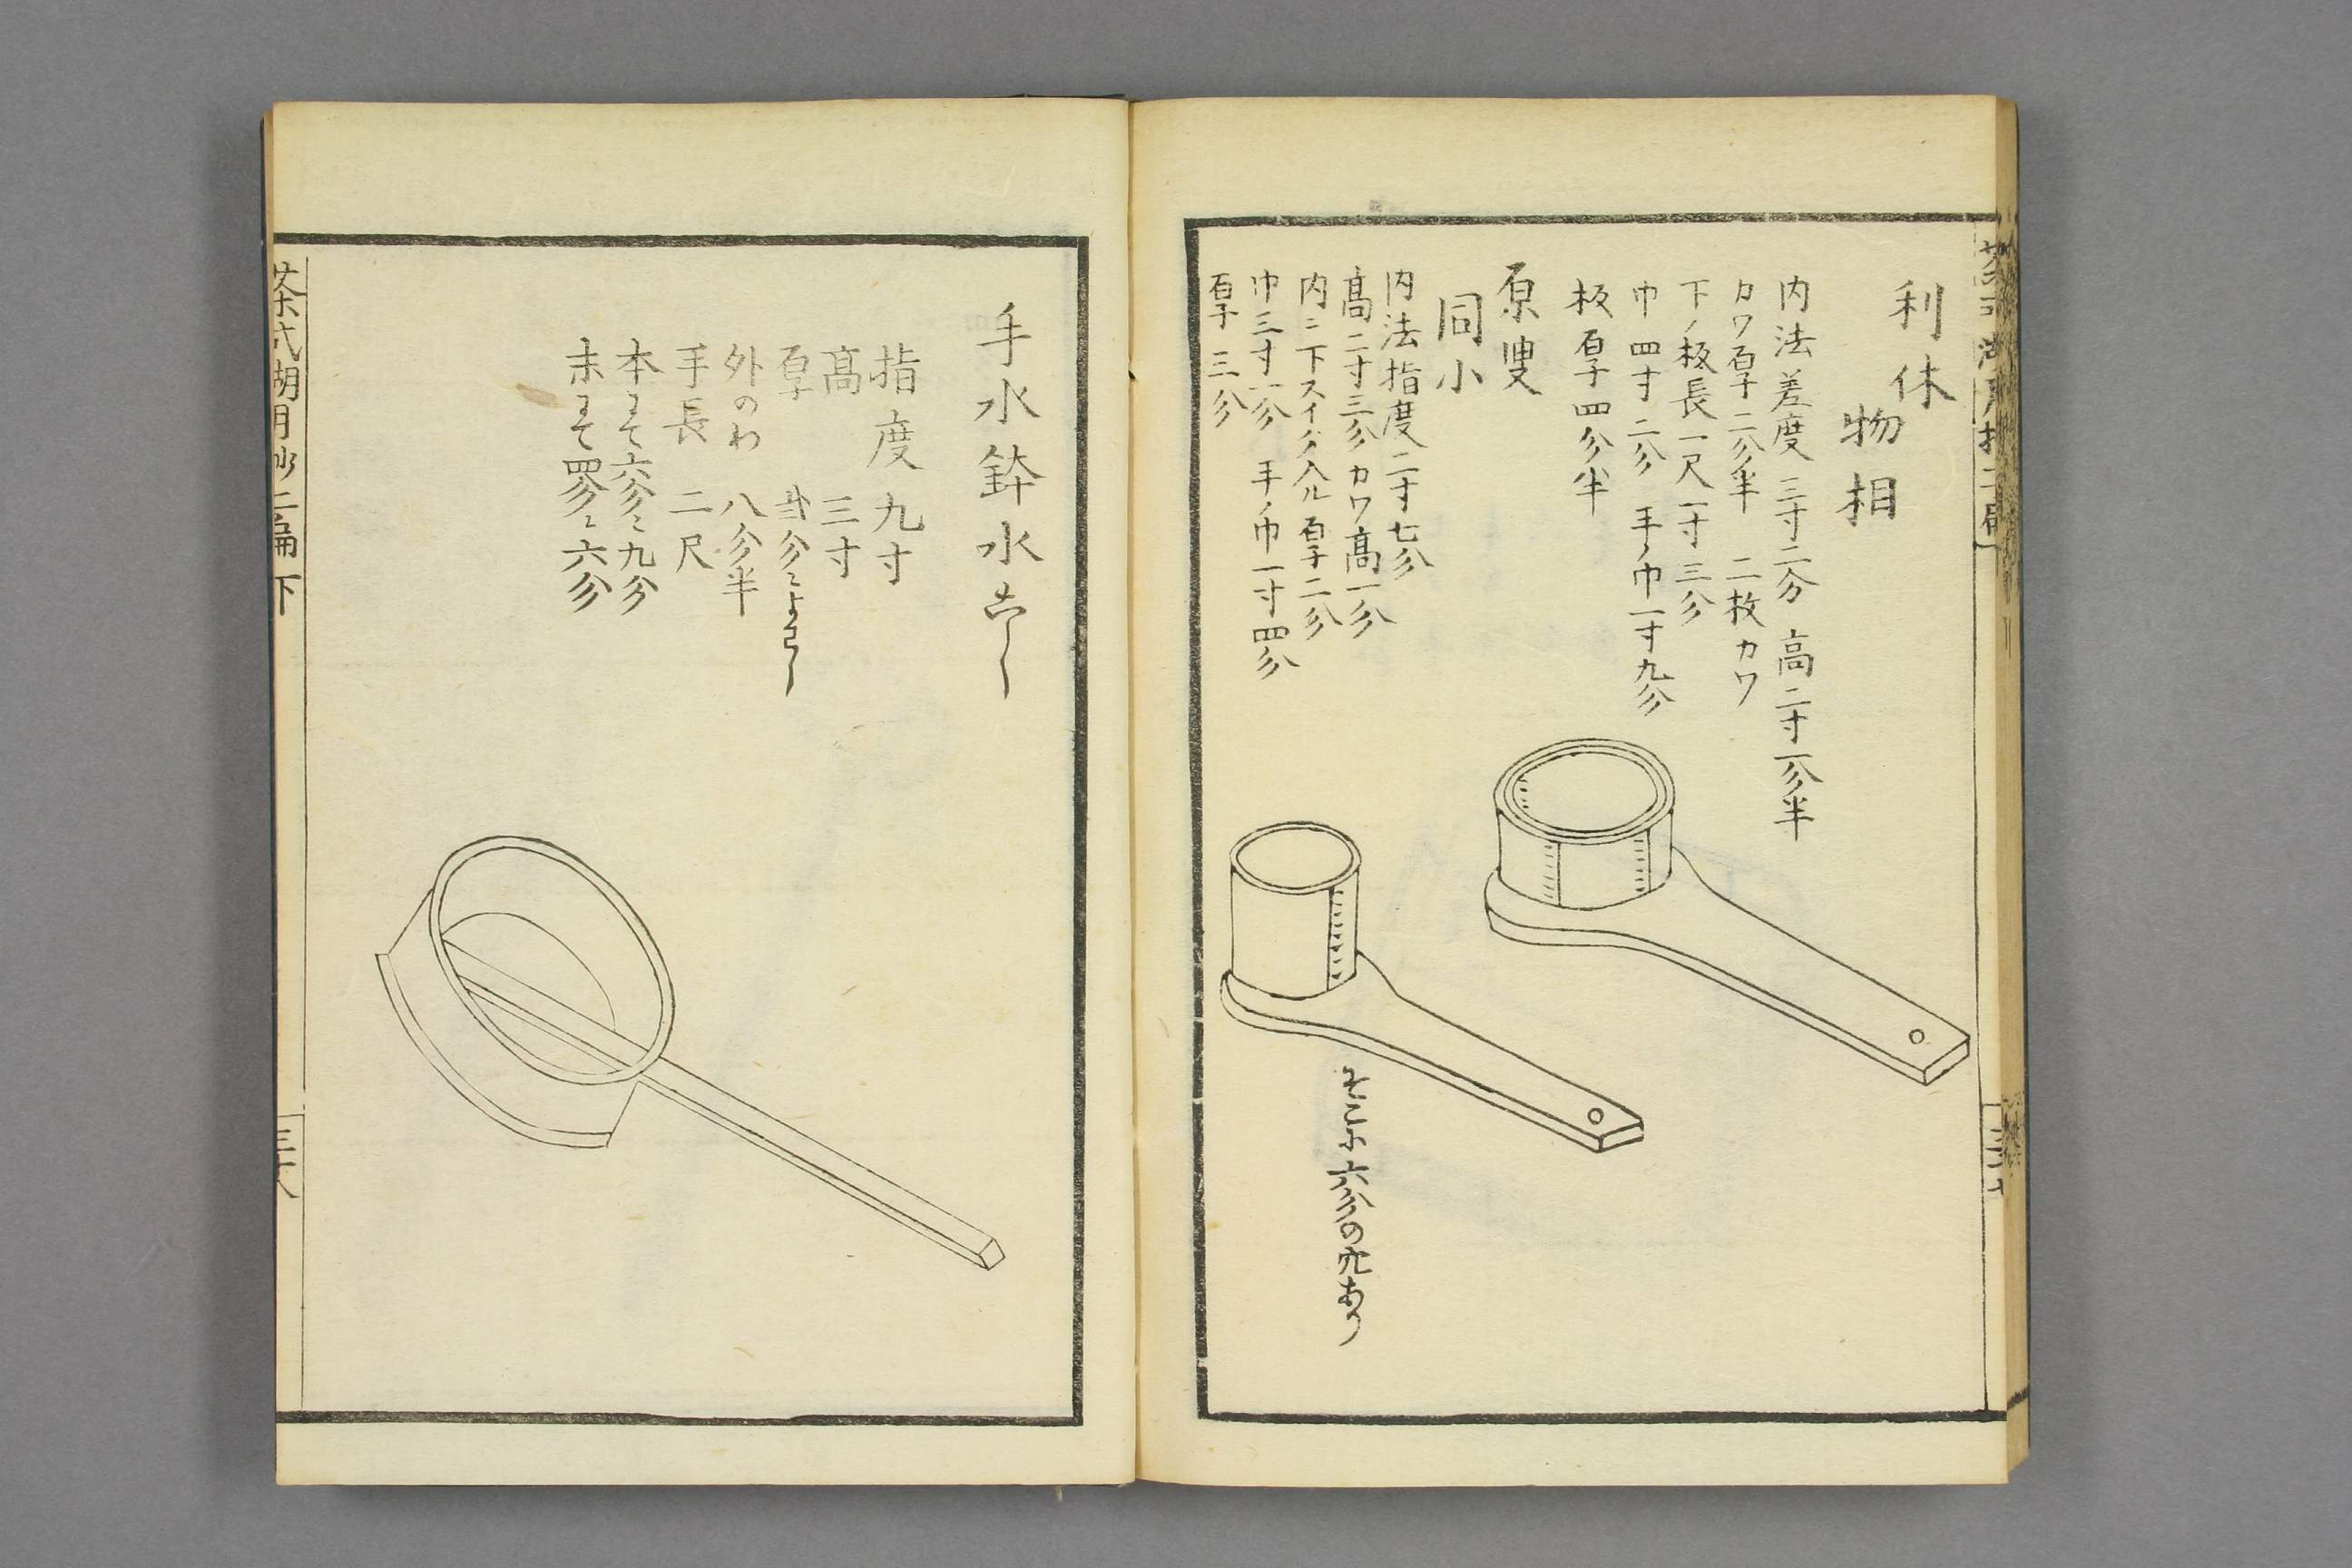 利休
物相
内法差度 三寸二分 高二寸一分半
カワ厚二分半 二枚カワ
下ノ板長一尺一寸三分
巾四寸二分 手ノ巾一寸九分
板厚四分半
原叟
同小
内法指度二寸七分
高二寸三分カワ高一分
内ニ下スイダ入ル厚二分
巾三寸一分 手ノ巾一寸四分
厚三分
そこに六分の穴あり
手水鉢水こし
指度九寸
高 三寸
厚 弐分ニよはし
外のわ 八分半
手長 二尺
本にて六分ニ九分
末にて四分ニ六分
茶式湖月抄二編下
三十八